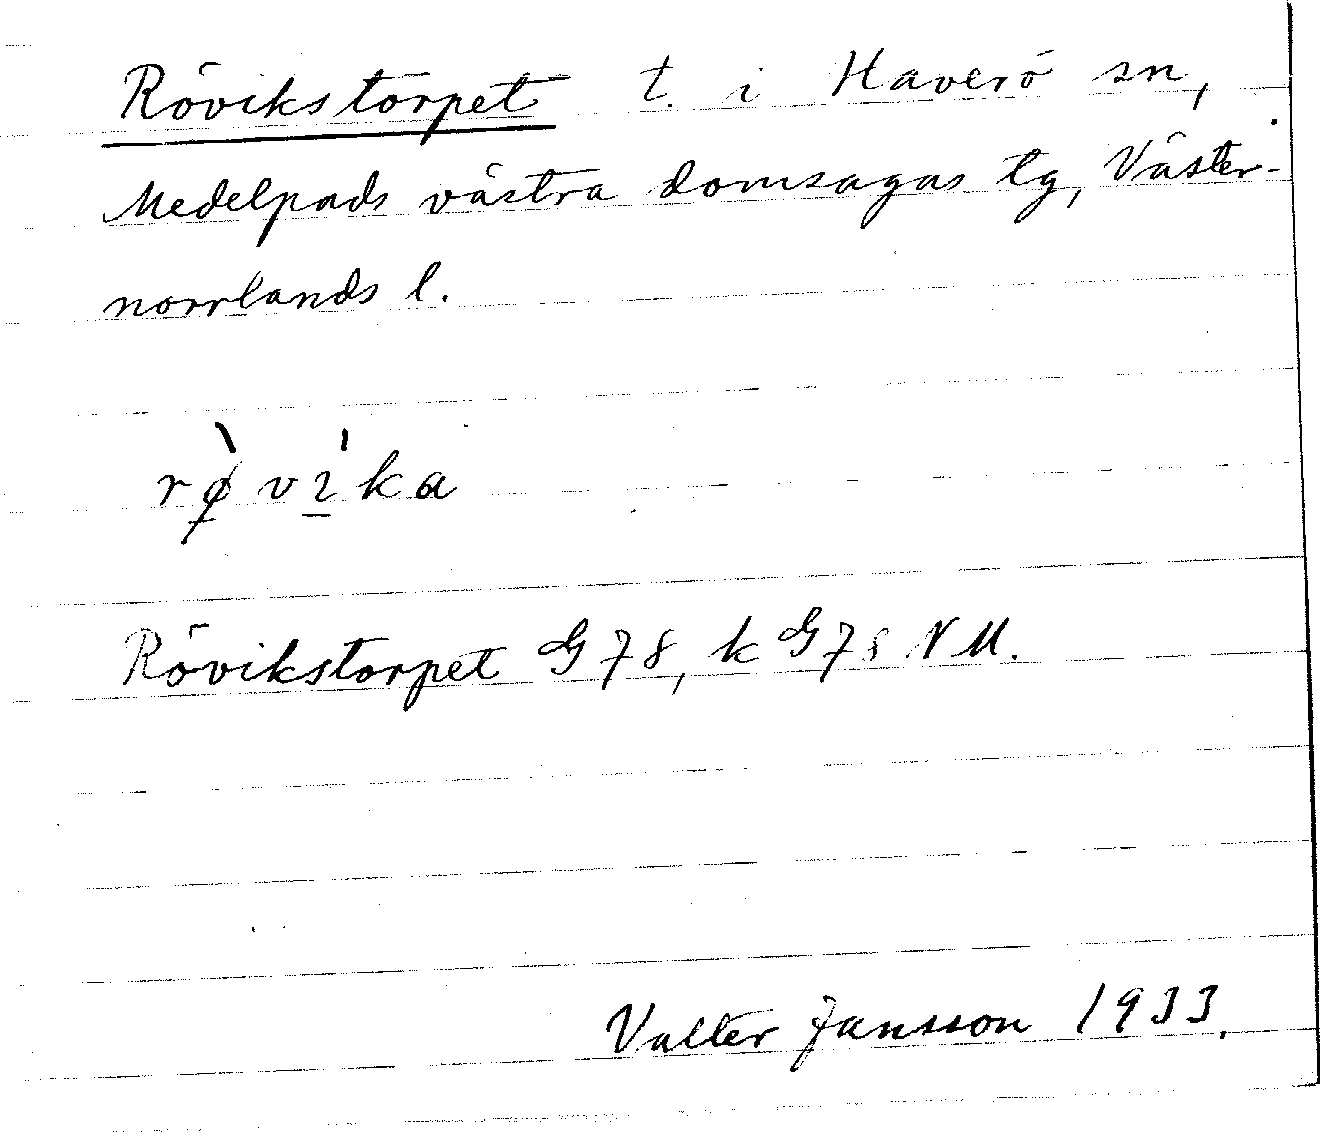 Rövikstorpet t. i Haverö sn,
Medelpads västra domsagas tg, Väster-
norrlands l.
rø̀vı̱́ka
Rövikstorpet G78, k G78 NM.
Valter Jansson 1933.